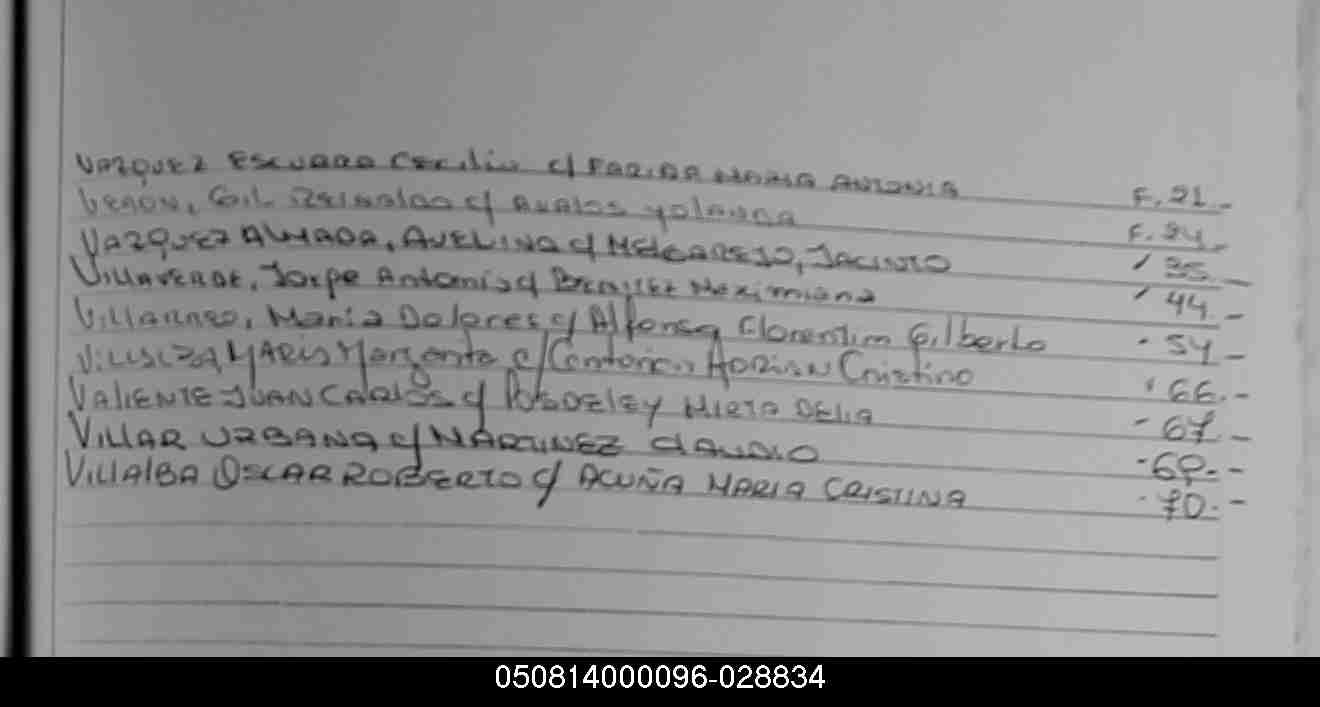 VAZQUEZ ESCURRA Cecilio c/ FARIÑA MARIA ANTONIA F. 21.-
Veron, Gil Reinaldo c/ Avalos Yolanda F. 24.-
VAZQUEZ ALMADA, AVELINO c/ MELGAREJO, JACINTO 35.-
VILLAVERDE, Jorge Antonio c/ Benitez Maximiana 44.-
Villarreo, Maria Dolores c/ Alfonso Florentin Gilberto 54-
MARIS Margarita c/ ADRIAN Cristino 66.-
VALIENTE JUAN CARLOS c/ MIRTA DELIA 67.-
VILLAR URBANA c/ MARTINEZ CLAUDIO 69.-
VILLALBA OSCAR ROBERTO c/ ACUÑA MARIA CRISTINA 70.-
050814000096-028834